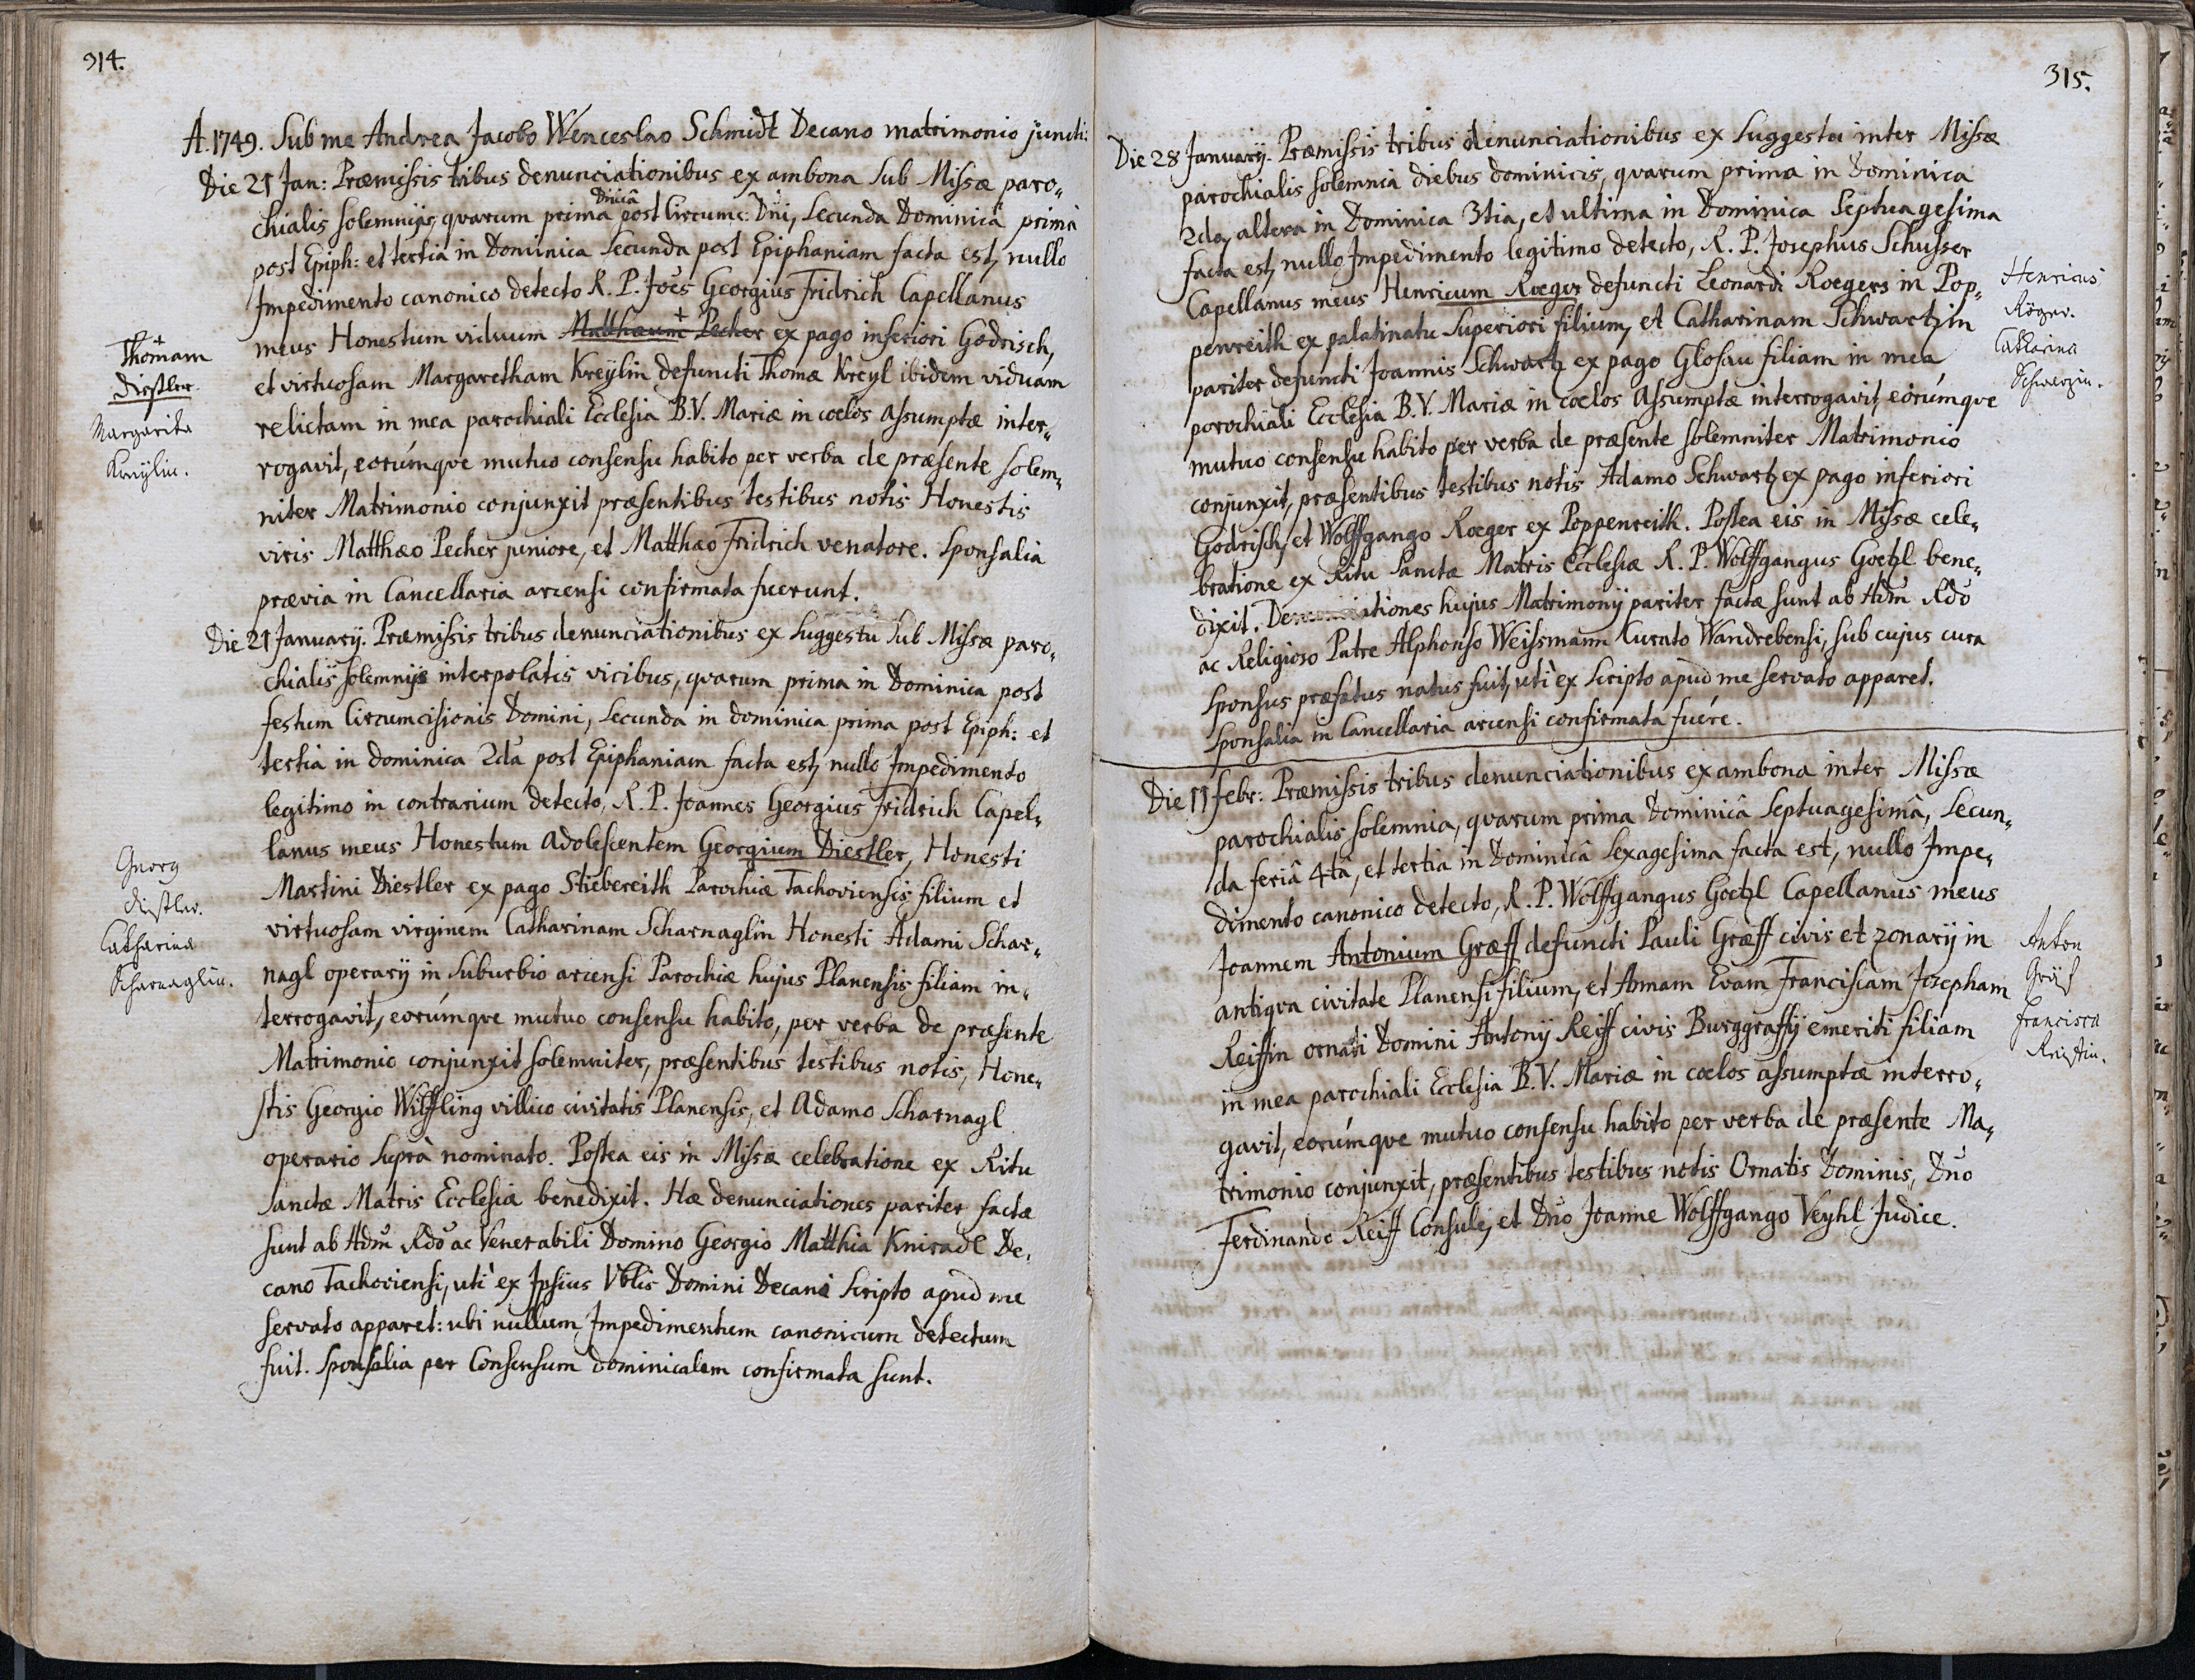 314.
A. 1749. Sub me Andrea Jacobo Wenceslao Schmidt Decano matrimonio juncti:
Die 21 Jan: Præmissis tribus denunciationibus ex ambona Sub Missæ paro„
Dnicâ
chialis solemnijs, quarum prima post Circumc: Dni, Secunda Dominicâ prima
post Epiph: et tertia in Dominica Secunda post Epiphaniam facta est, nullo
Impedimento canonico detecto R. P. Joẽs Georgius Fridrich Capellanus
meus Honestum viduum Matthæum Pecher + ex pago inferiori Godrisch,
+
Thomam
Distler.
Margarita
Kreylin.
et virtuosam Margaretham Kreylin defuncti Thomæ Kreyl ibidem viduam
relictam in mea parochiali Ecclesia B.V. Mariæ in cœlos Assumptæ inter„
rogavit, eorúmque mutuo consensu habito per verba de præsente solem„
niter Matrimonio conjunxit præsentibus testibus notis Honestis
viris Matthæo Pecher juniore, et Matthæo Fridrich venatore. Sponsalia
prævia in Cancellaria arcensi confirmata fuerunt.
Die 21 Januarij. Præmissis tribus denunciationibus ex Suggestu Sub Missæ paro„
chialis solemnijs interpolatis vicibus, quarum prima in Dominica post
festum Circumcisionis Domini, Secunda in dominica prima post Epiph: et
tertia in dominica 2da post Epiphaniam facta est, nullo Impedimento
legitimo in contrarium detecto, R. P. Joannes Georgius Fridrich Capel„
lanus meus Honestum Adolescentem Georgium Diestler, Honesti
Georg
Distler.
Catharina
Scharnaglin.
Martini Diestler ex pago Stiebereith Parochiæ Tachoviensis filium et
virtuosam virginem Catharinam Scharnaglin Honesti Adami Schar„
nagl operarij in Suburbio arcensi Parochiæ hujus Planensis filiam in„
terrogavit, eorúmque mutuo consensu habito, per verba de præsente
Matrimonio conjunxit solemniter, præsentibus testibus notis, Hone„
stis Georgio Wilffling villico civitatis Planensis, et Adamo Scharnagl
operario Suprà nominato. Postea eis in Missæ celebratione ex Ritu
Sanctæ Matris Ecclesiæ benedixit. Hæ denunciationes pariter factæ
sunt ab Adm Rdo ac Venerabili Domino Georgio Matthia Kniradl De„
cano Tachoviensi, utì ex Ipsius Vblis Domini Decani Scripto apud me
servato apparet: ubi nullum Impedimentum canonicum detectum
fuit. Sponsalia per Consensum dominicalem confirmata sunt.
315.
Die 28 Januarij. Præmissis tribus denunciationibus ex Suggestu inter Missæ
parochialis solemnia diebus dominicis, quarum prima in Dominica
2da, altera in Dominica 3tia, et ultima in Dominica Septuagesima
facta est, nullo Impedimento legitimo detecto, R. P. Josephus Schusser
Capellanus meus Henricum Roeger defuncti Leonardi Roegers in Pop„
Henricus
Röger.
Catharina
Schwarzin.
penreith ex palatinatu Superiori filium, et Catharinam Schwartzin
pariter defuncti Joannis Schwartz ex pago Glosau filiam in mea
parochiali Ecclesia B.V. Mariæ in cœlos Assumptæ interrogavit, eorúmque
mutuo consensu habito per verba de præsente solemniter Matrimonio
conjunxit, præsentibus testibus notis Adamo Schwartz ex pago inferiori
Godrisch, et Wolffgango Roeger ex Poppenreith. Postea eis in Missæ cele„
bratione ex Ritu Sanctæ Matris Ecclesiæ R. P. Wolffgangus Goetzl bene„
dixit. Denunciationes hujus Matrimonij pariter factæ sunt ab Adm Rdo
ac Religioso Patre Alphonso Weissmann Curato Wandrebensi, sub cujus cura
Sponsus præfatus natus fuit, utì ex Scripto apud me servato apparet.
Sponsalia in Cancellaria arcensi confirmata fuére.
Die 11 Febr: Præmissis tribus denunciationibus ex ambona inter Missæ
parochialis solemnia, quarum prima Dominicâ Septuagesimâ, Secun„
da feriâ 4tâ, et tertia in Dominicâ Sexagesima facta est, nullo Impe„
dimento canonico detecto, R. P. Wolffgangus Goetzl Capellanus meus
Joannem Antonium Græff defuncti Pauli Græff civis et zonarij in
Anton
Gräf
Francisca
Reiffin.
antiqua civitate Planensi filium, et Annam Evam Franciscam Josepham
Reiffin ornati Domini Antonij Reiff civis Burggraffij emeriti filiam
in mea parochiali Ecclesia B.V. Mariæ in cœlos assumptæ interro„
gavit, eorúmque mutuo consensu habito per verba de præsente Ma„
trimonio conjunxit, præsentibus testibus notis Ornatis Dominis, Dno
Ferdinando Reiff Consule, et Dno Joanne Wolffgango Veyhl Judice.